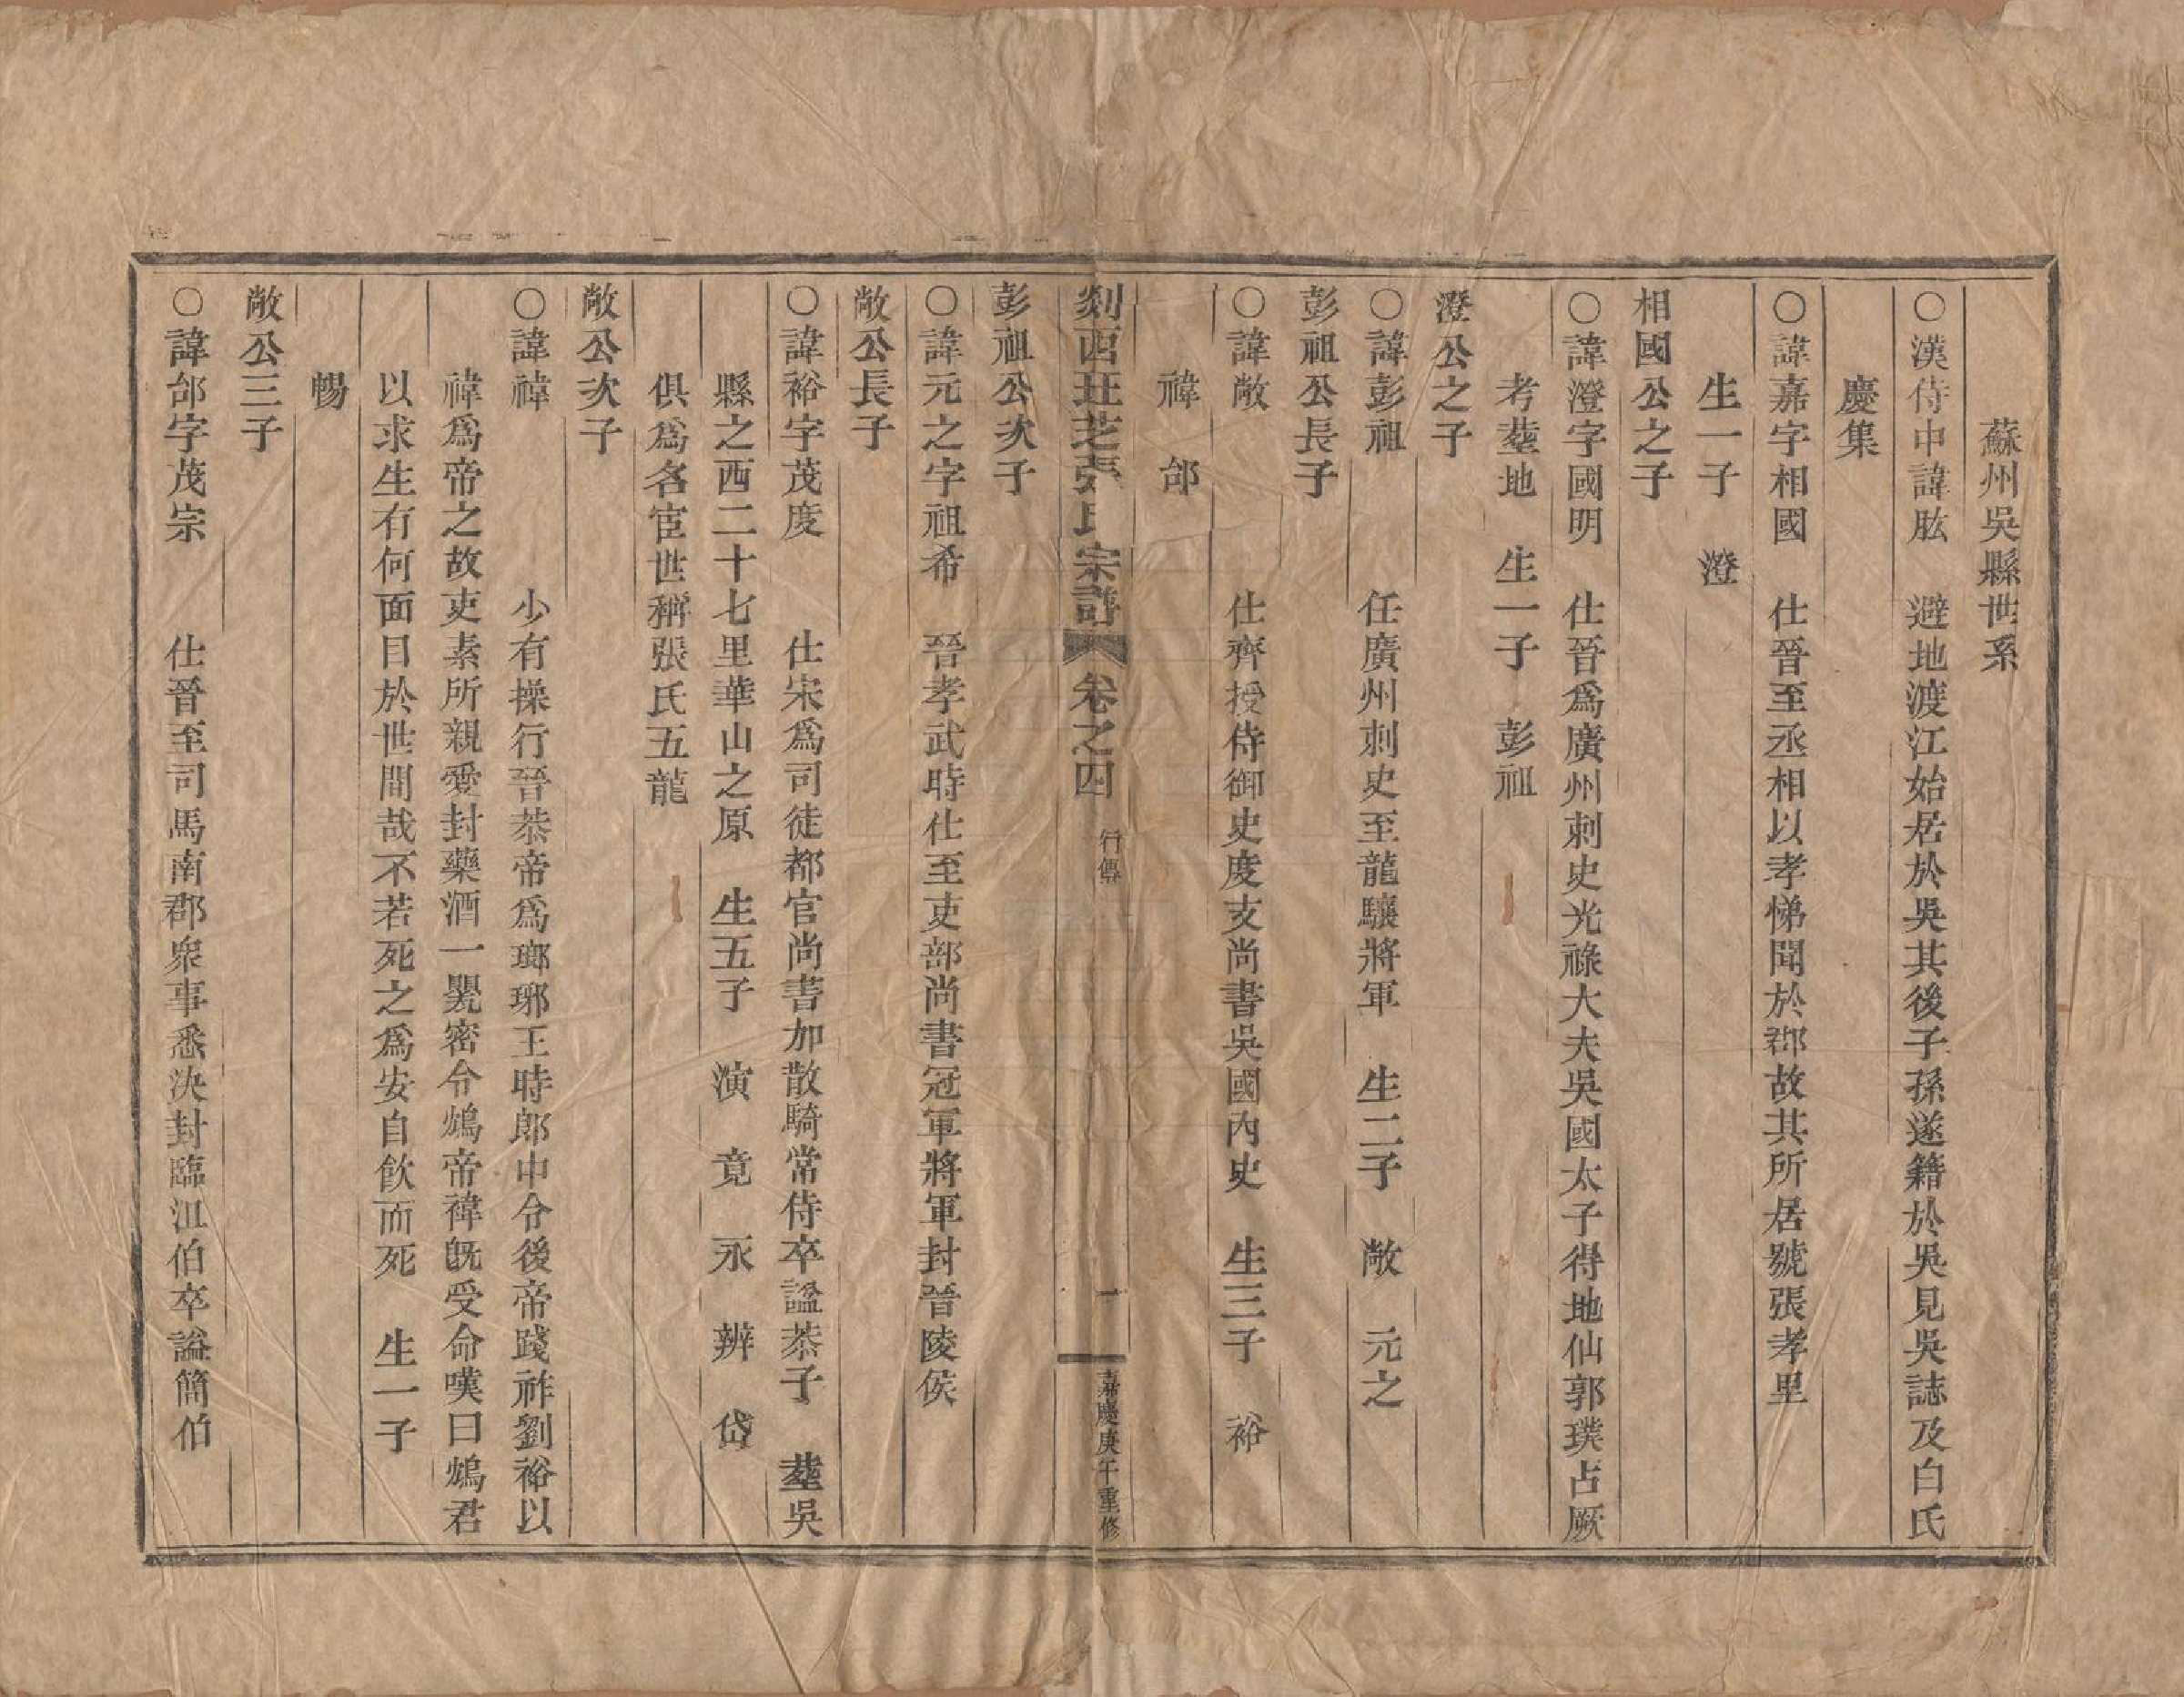 蘇州吳縣世系
○漢侍中諱肱　避地渡江始居於吳其後子孫遂籍於吳見吳誌及白氏
慶集
○諱嘉字相國　仕晉至丞相以孝悌聞於郡故其所居號張孝里
生一子　澄
相國公之子
○諱澄字國明　仕晉爲廣州刺史光祿大夫吳國太子得地仙郭璞占厥
考塟地　生一子　彭祖
澄公之子
○諱彭祖　任廣州刺史至龍驤將軍　生二子　敞　元之
彭祖公長子
○諱敞　仕齊授侍御史度支尚書吳國內史　生三子　裕
褘　邰
剡西珏芝張氏宗譜　卷之四　行傳　一　嘉慶庚午重修
彭祖公次子
○諱元之字祖希　晉孝武時仕至吏部尚書冠軍將軍封晉陵侯
敞公長子
○諱裕字茂度　仕宋爲司徒都官尚書加散騎常侍卒謚恭子　塟吳
縣之西二十七里華山之原　生五子　演　竟　永　辨　岱
俱爲名宦世稱張氏五龍
敞公次子
○諱褘　少有操行晉恭帝爲瑯琊王時郎中令後帝踐祚劉裕以
褘爲帝之故吏素所親愛封藥酒一甖密令鴆帝褘旣受命嘆曰鴆君
以求生有何面目於世間哉不若死之爲安自飲而死　生一子
暢
敞公三子
○諱邰字茂宗　仕晉至司馬南郡衆事悉決封臨沮伯卒謚簡伯